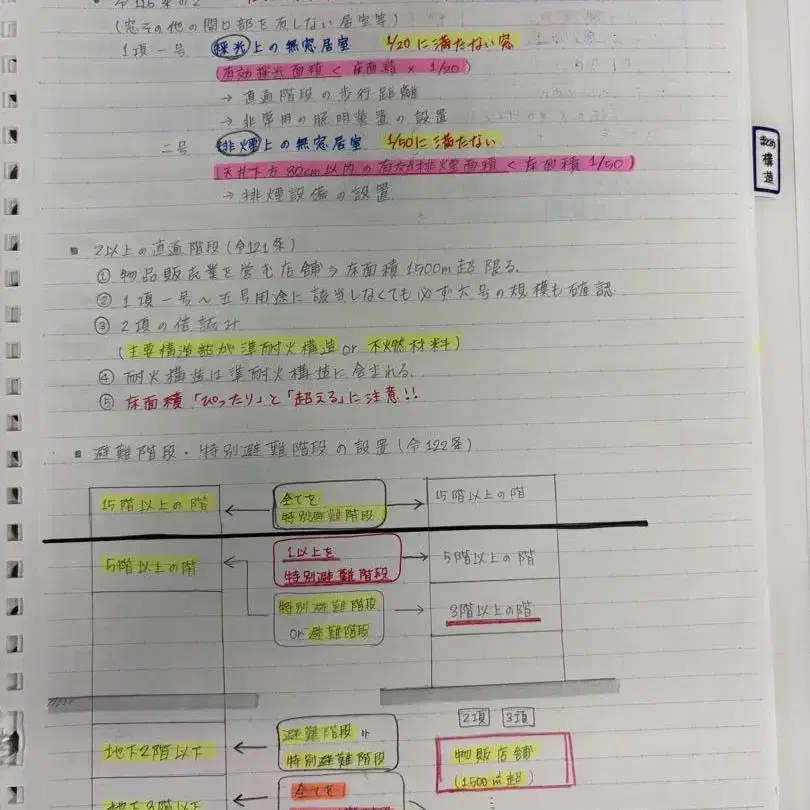 令116条の2
(窓その他の開口部を有しない居室等)
1項一号 採光上の無窓居室 1/20に満たない窓
(有効採光面積 < 床面積 × 1/20)
→ 直通階段の歩行距離
→ 非常用の照明装置の設置
二号 排煙上の無窓居室 1/50に満たない
(天井下方80cm以内の有効排煙面積 < 床面積 1/50)
→ 排煙設備の設置
まとめ
構造
2以上の直通階段(令121条)
① 物品販売業を営む店舗→床面積1500㎡超限る.
② 1項一号〜五号用途に該当しなくても必ず六号の規模も確認
③ 2項の倍読み
(主要構造部が準耐火構造 or 不燃材料)
④ 耐火構造は準耐火構造に含まれる.
⑤ 床面積「ぴったり」と「超える」に注意!!
避難階段・特別避難階段の設置(令122条)
15階以上の階 ← 全てを → 15階以上の階
特別避難階段
5階以上の階 ← 1以上を → 5階以上の階
特別避難階段
特別避難階段 → 3階以上の階
or 避難階段
2項 3項
地下2階以下 ← 避難階段 or
特別避難階段
物販店舗
(1500㎡超)
地下3階以下 ← 全てを